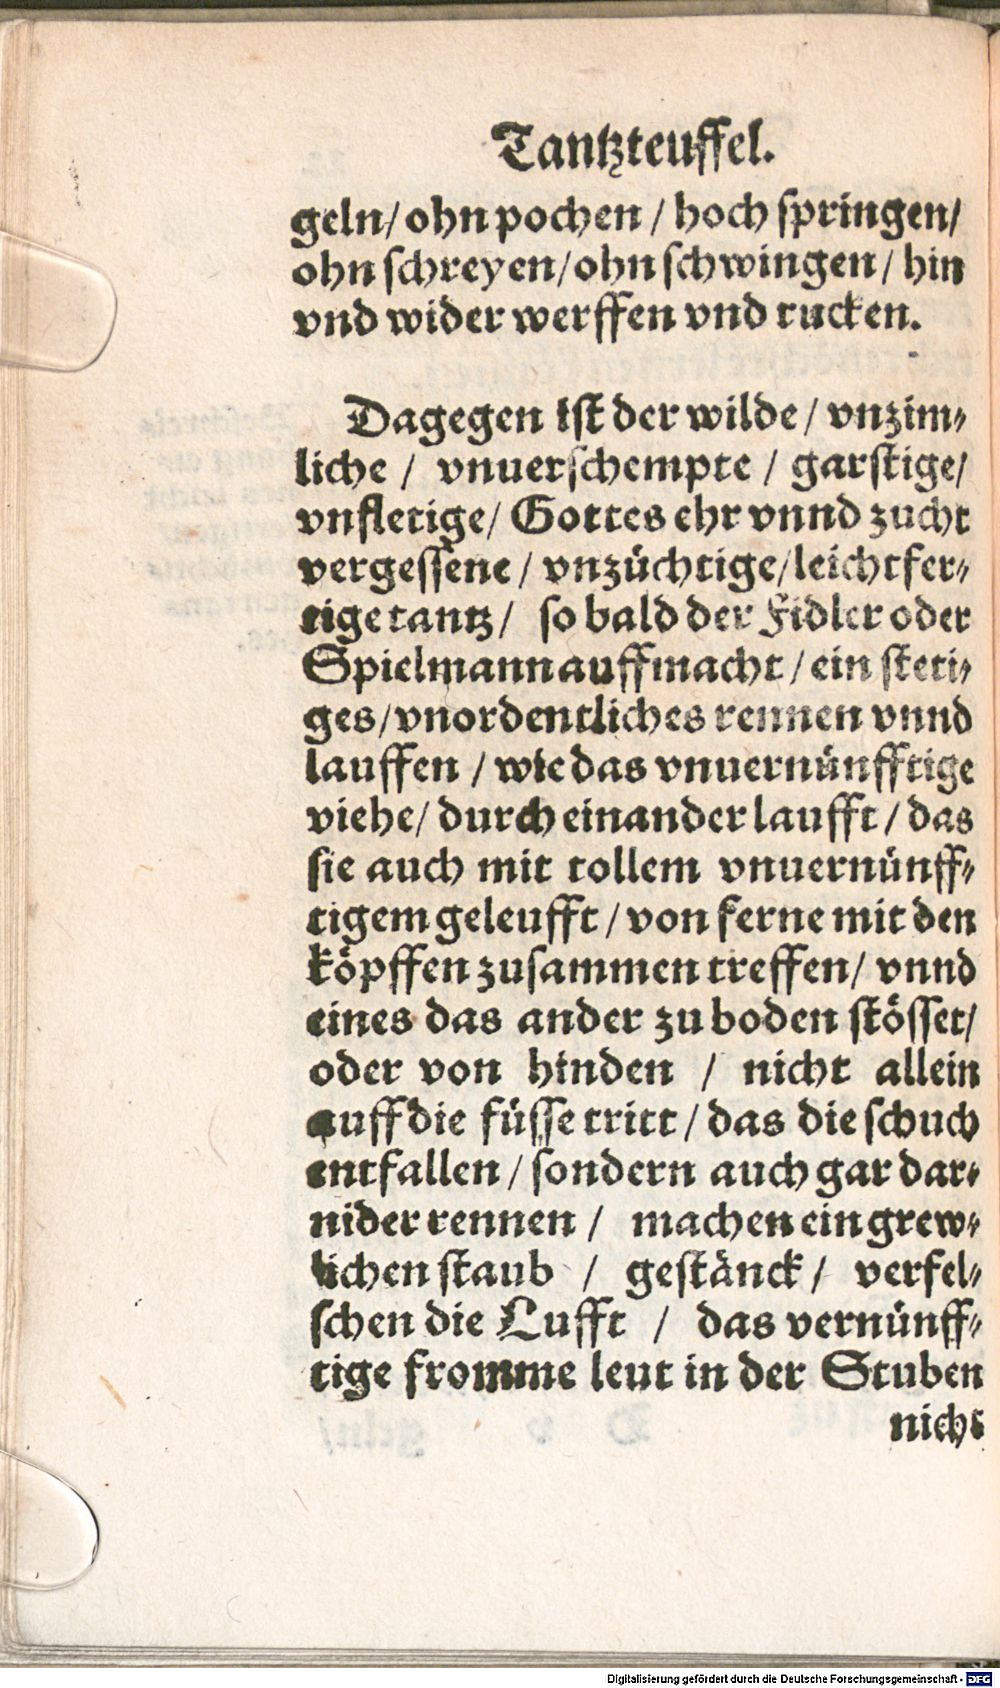 Tantzteuffel.
geln/ ohn pochen / hoch springen/
ohn schreyen/ ohn schwingen / hin
vnd wider werffen vnd rucken.
Dagegen ist der wilde / vnzim⸗
liche / vnuerschempte / garstige/
vnfletige/ Gottes ehr vnnd zucht
vergessene / vnzüchtige/ leichtfer⸗
tige tantz / so bald der Fidler oder
Spielmann auffmacht / ein steti⸗
ges/ vnordentliches rennen vnnd
lauffen / wie das vnuernünfftige
viehe/ durch einander laufft / das
sie auch mit tollem vnuernünff⸗
tigem geleufft / von ferne mit den
köpffen zusammen treffen/ vnnd
eines das ander zu boden stösset/
oder von hinden / nicht allein
auff die füsse tritt / das die schuch
entfallen / sondern auch gar dar⸗
nider rennen / machen ein grew⸗
lichen staub / gestänck / verfel⸗
schen die Lufft / das vernünff⸗
tige fromme leut in der Stuben
nicht
Digitalisierung gefördert durch die Deutsche Forschungsgemeinschaft - DFG